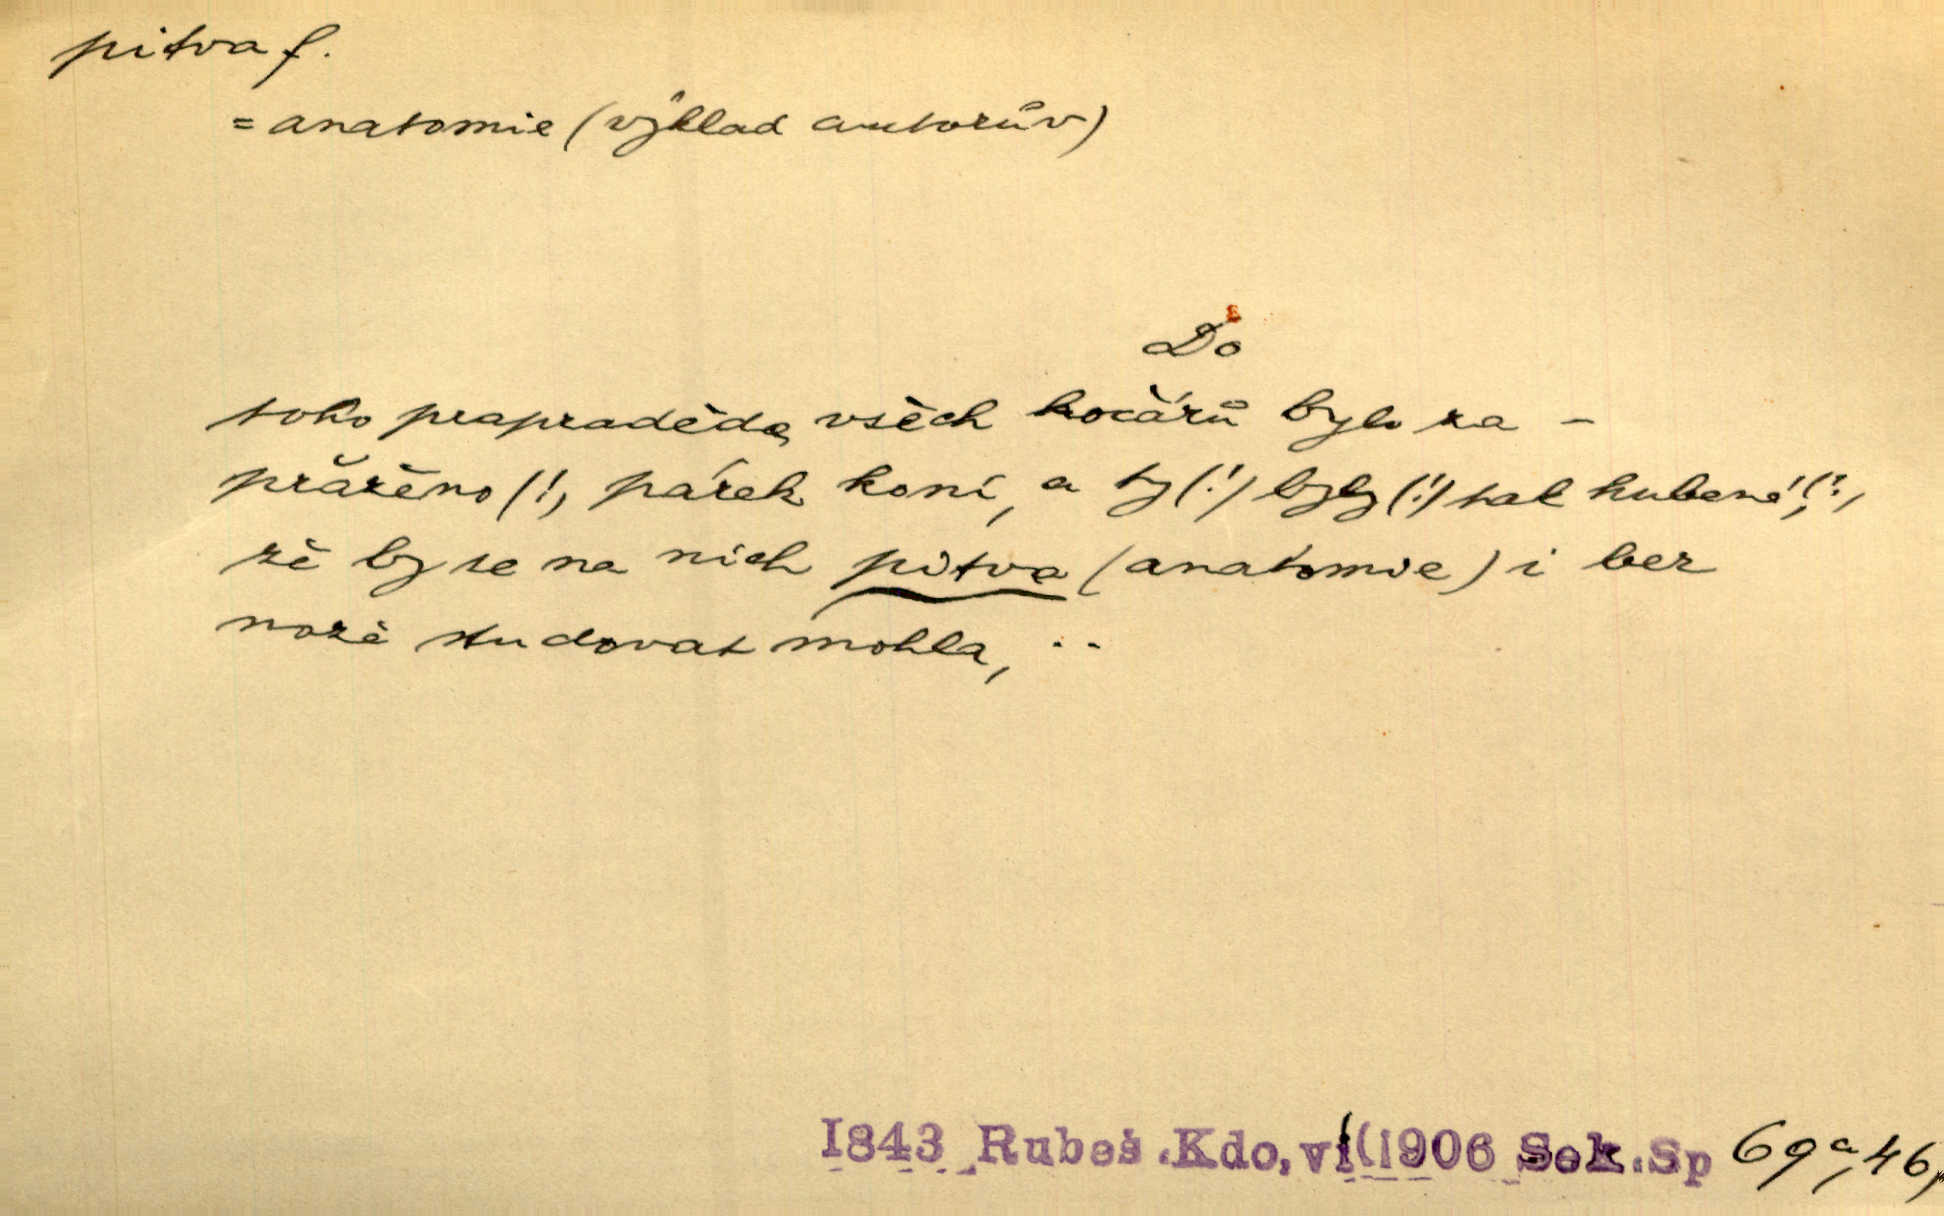 pitva f.
= anatomie (výklad autorův)
Do
toho prapraděda všech kočárů bylo za-
přaženo (!) párek koní, a ty (!) byly (!) tak hubené (!),
že by se na nich pitva (anatomie) i bez
nože studovat mohla, ..
1843 Rubeš.Kdo,ví (1906 Sek.Sp 69a,46)